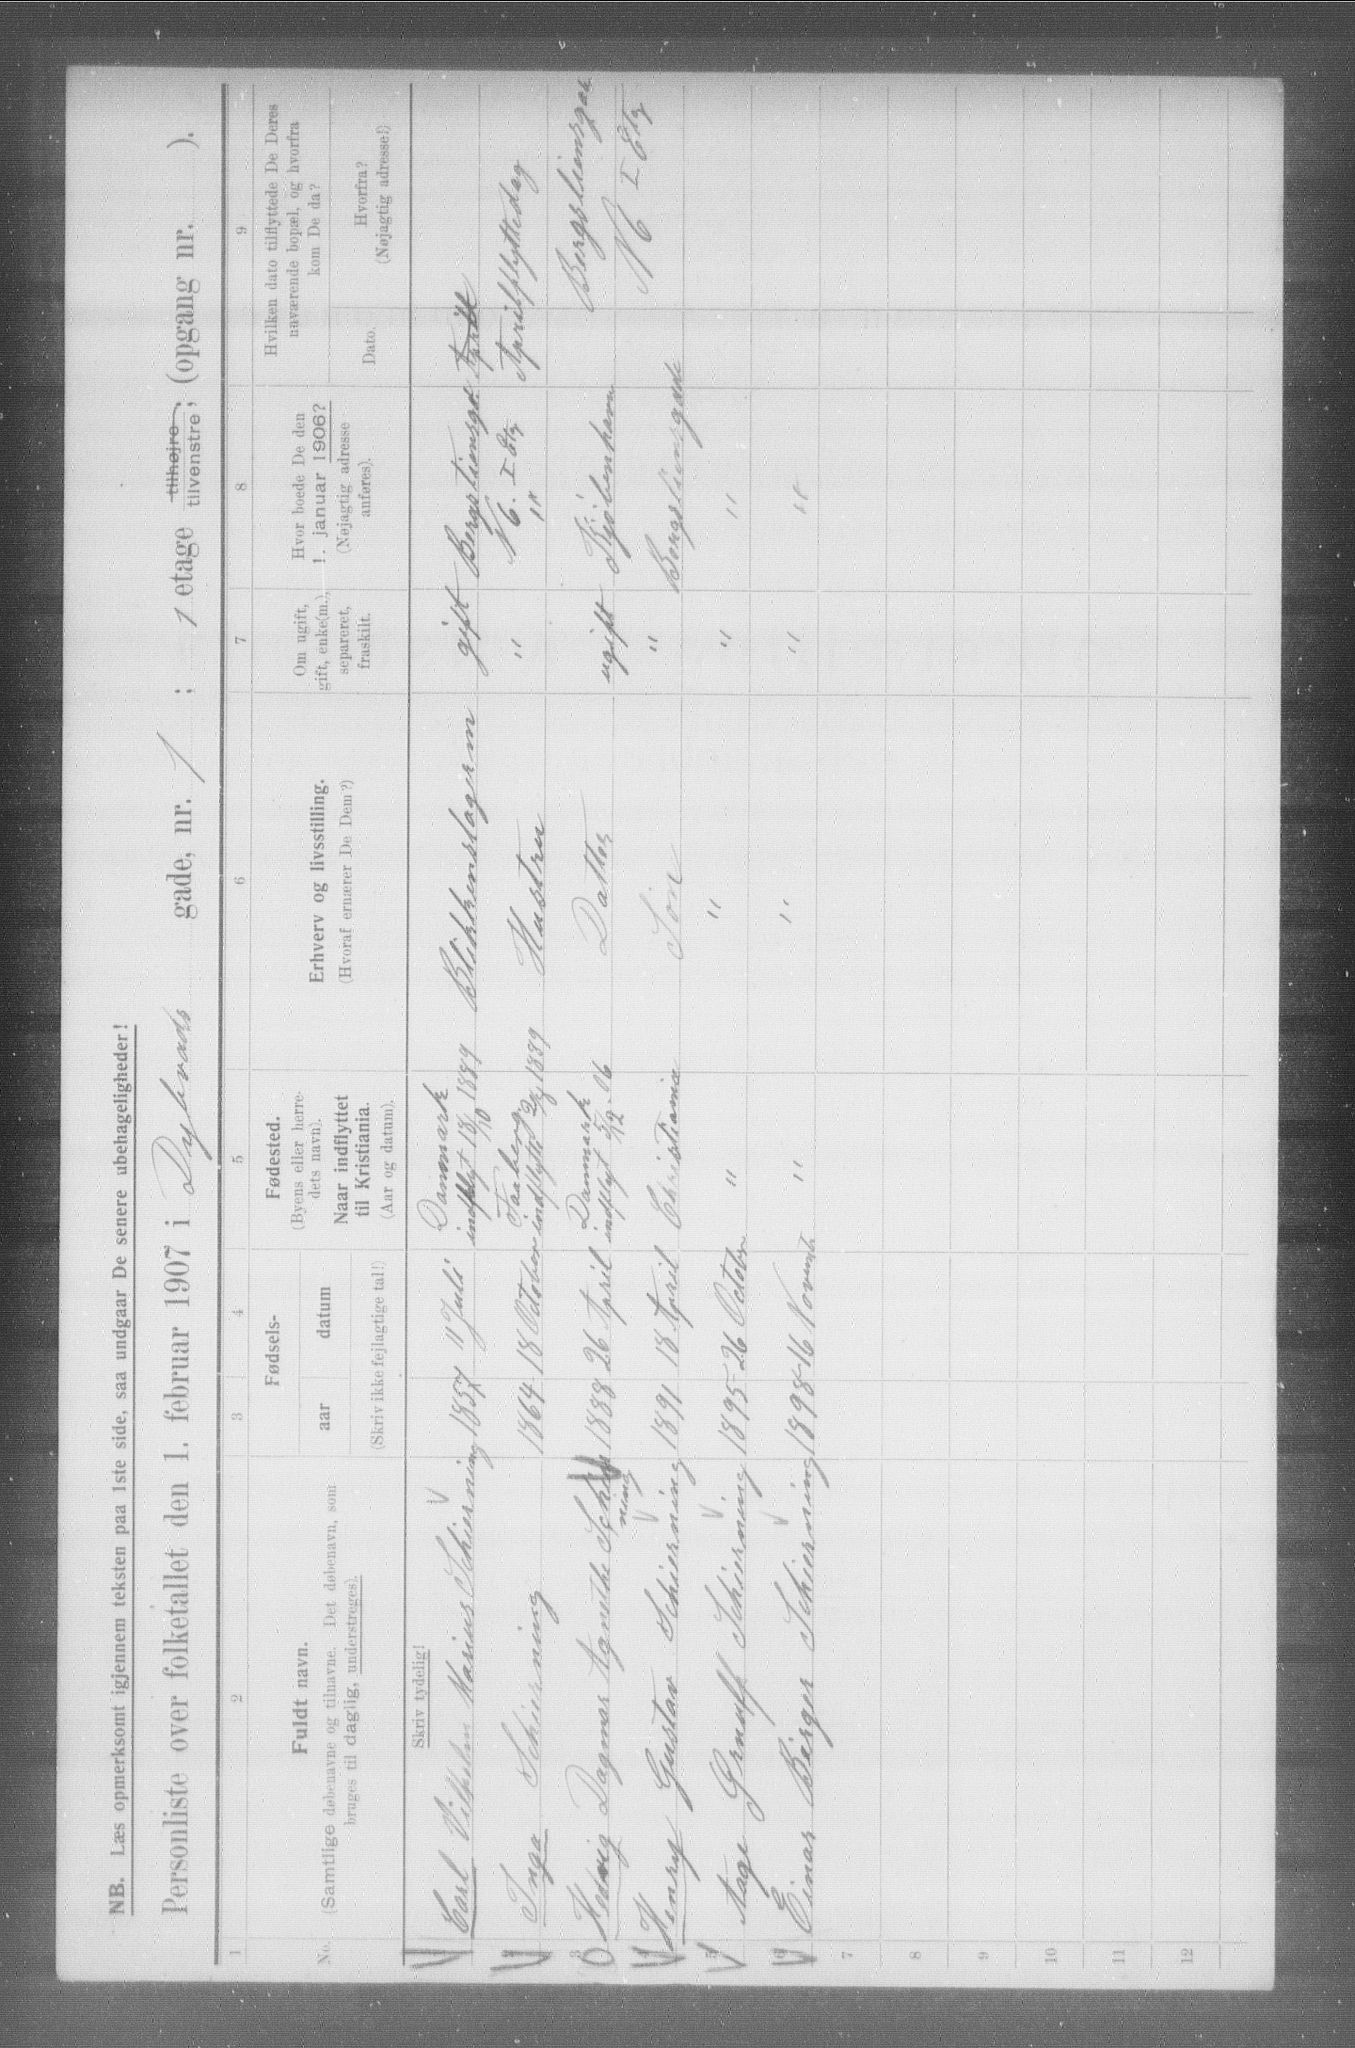 NB. Læs opmerksomt igjennem teksten paa 1ste side, saa undgaar De senere ubehageligheder!
Personliste over folketallet den 1. februar 1907 i Dybvads gade, nr. 1 ; 1 etage tilhøjre, tilvenstre; (opgang nr. ).
1 2 3 4 5 6 7 8 9
No.
Fuldt navn.
(Samtlige døbenavne og tilnavne. Det døbenavn, som
bruges til daglig, understreges).
Fødsels-
aar datum
(Skriv ikke fejlagtige tal!)
Fødested.
(Byens eller herre-
dets navn).
Naar indflyttet
til Kristiania.
(Aar og datum).
Erhverv og livsstilling.
(Hvoraf ernærer De Dem?)
Om ugift,
gift, enke(m.),
separeret,
fraskilt.
Hvor boede De den
1. januar 1906?
(Nøjagtig adresse
anføres).
Hvilken dato tilflyttede De Deres
nuværende bopæl, og hvorfra
kom De da?
Dato.
Hvorfra?
(Nøjagtig adresse!)
Skriv tydelig!
Carl Vilhelm Marius Schierning 1857 11 Juli Danmark indflyt 18/10 1889 Blikkenslagerm gift Bergsliensgade
2 Inga Schierning 1864 18 October Faaberg indflyttet 1889 Hustru " 16. I Etg Aprilflyttedag
3 Hedvig Dagmar Agnethe Schierning 1888 26 April Danmark indflyt 06 Datter ugift Kjøbenhavn Bergsliensgade
4 Henry Gustav Schierning 1891 18 April Christiania Søn " Bergsliensgade 16 I Etg
5 Aage Schierning 1895 26 October " " " "
6 Einar Birger Schierning 1898 16 Novemb " " " "
7
8
9
10
11
12